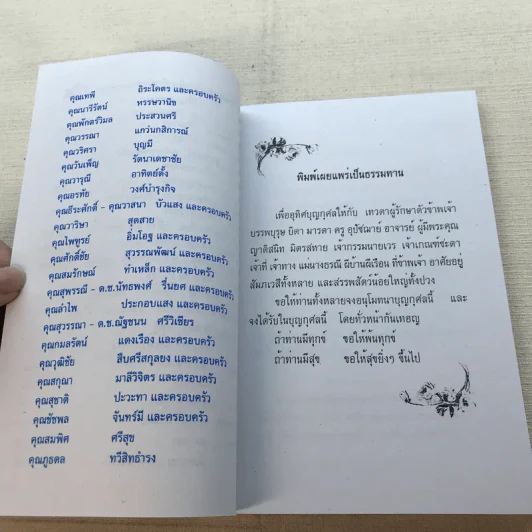 คุณเทพี ถิระโคตร และครอบครัว
คุณนารีรัตน์ หรรษวานิช
คุณพักตร์วิมล ประสวนศรี
คุณวรรณา แกว่นกสิการณ์
คุณวริศรา บุญมี
คุณวันเพ็ญ รัตนาเดชาชัย
คุณวารุณี อาทิตย์ตั้ง
คุณอรทัย วงศ์บำรุงกิจ
คุณธีระศักดิ์ - คุณวาสนา บัวแสง และครอบครัว
คุณวาริษา สุดสาย
คุณไพฑูรย์ อิ่มโอฐ และครอบครัว
คุณศักดิ์ชัย สุวรรณพัฒน์ และครอบครัว
คุณสมรักษณ์ ทำเหล็ก และครอบครัว
คุณสุพรรณี - ด.ช.นัทธพงศ์ รื่นยศ และครอบครัว
คุณลำไพ ประกอบแสง และครอบครัว
คุณสุวรรณา - ด.ช.ณัฐชนน ศรีวิเชียร
คุณกมลรัตน์ แดงเรือง และครอบครัว
คุณวุฒิชัย สืบศรีสกุลยง และครอบครัว
คุณสกุณา มาลีวิจิตร และครอบครัว
คุณสุชาติ ปะวะทา และครอบครัว
คุณชัชพล จันทร์มี และครอบครัว
คุณสมพิศ ศรีสุข
คุณภูธดล ทวีสิทธำรง
พิมพ์เผยแพร่เป็นธรรมทาน
เพื่ออุทิศบุญกุศลให้กับ เทวดาผู้รักษาตัวข้าพเจ้า
บรรพบุรุษ บิดา มารดา ครู อุปัชฌาย์ อาจารย์ ผู้มีพระคุณ
ญาติสนิท มิตรสหาย เจ้ากรรมนายเวร เจ้าเกณฑ์ชะตา
เจ้าที่ เจ้าทาง แม่นางธรณี ผีบ้านผีเรือน ที่ข้าพเจ้า อาศัยอยู่
สัมภเวสีทั้งหลาย และสรรพสัตว์น้อยใหญ่ทั้งปวง
ขอให้ท่านทั้งหลายจงอนุโมทนาบุญกุศลนี้ และ
จงได้รับในบุญกุศลนี้ โดยทั่วหน้ากันเทอญ
ถ้าท่านมีทุกข์ ขอให้พ้นทุกข์
ถ้าท่านมีสุข ขอให้สุขยิ่งๆ ขึ้นไป